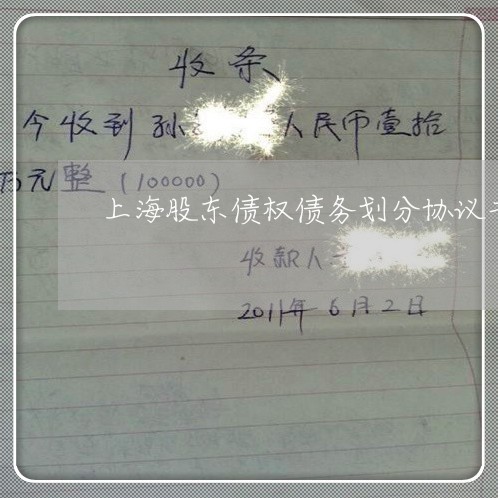 收条
今收到孙 人民币壹拾
万元整（100000）
上海股东债权债务划分协议
收款人
2011年6月2日